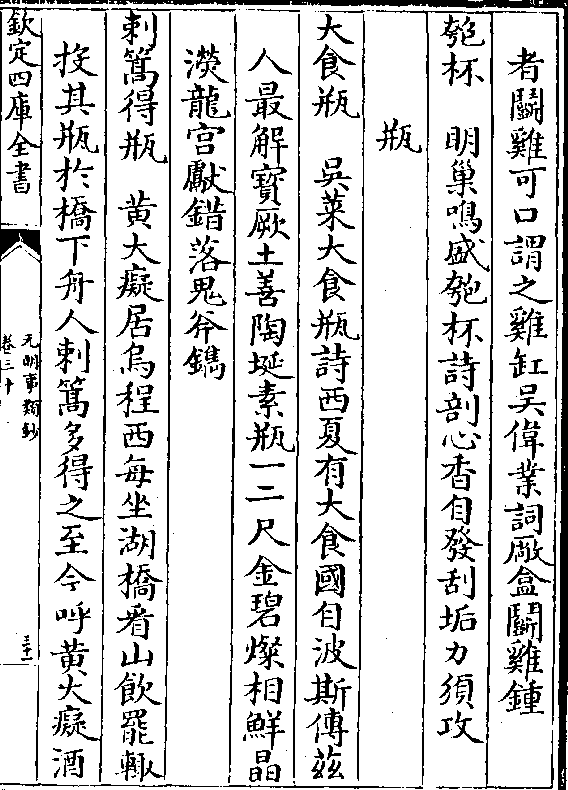 者鬭雞可口謂之雞缸吳偉業詞廠盒鬭雞鍾
匏杯　明巢鳴盛匏杯詩剖心香自發刮垢力須攻
瓶
大食瓶　吳萊大食瓶詩西夏有大食國自波斯傳茲
人最解寶厥土善陶埏素瓶一二尺金碧燦相鮮晶
濙龍宮獻錯落鬼斧鐫
刺篙得瓶　黄大癡居烏程西每坐湖橋看山飲罷輙
投其瓶於橋下舟人刺篙多得之至今呼黄大癡酒
欽定四庫全書
元明事類鈔
卷三十
三十一